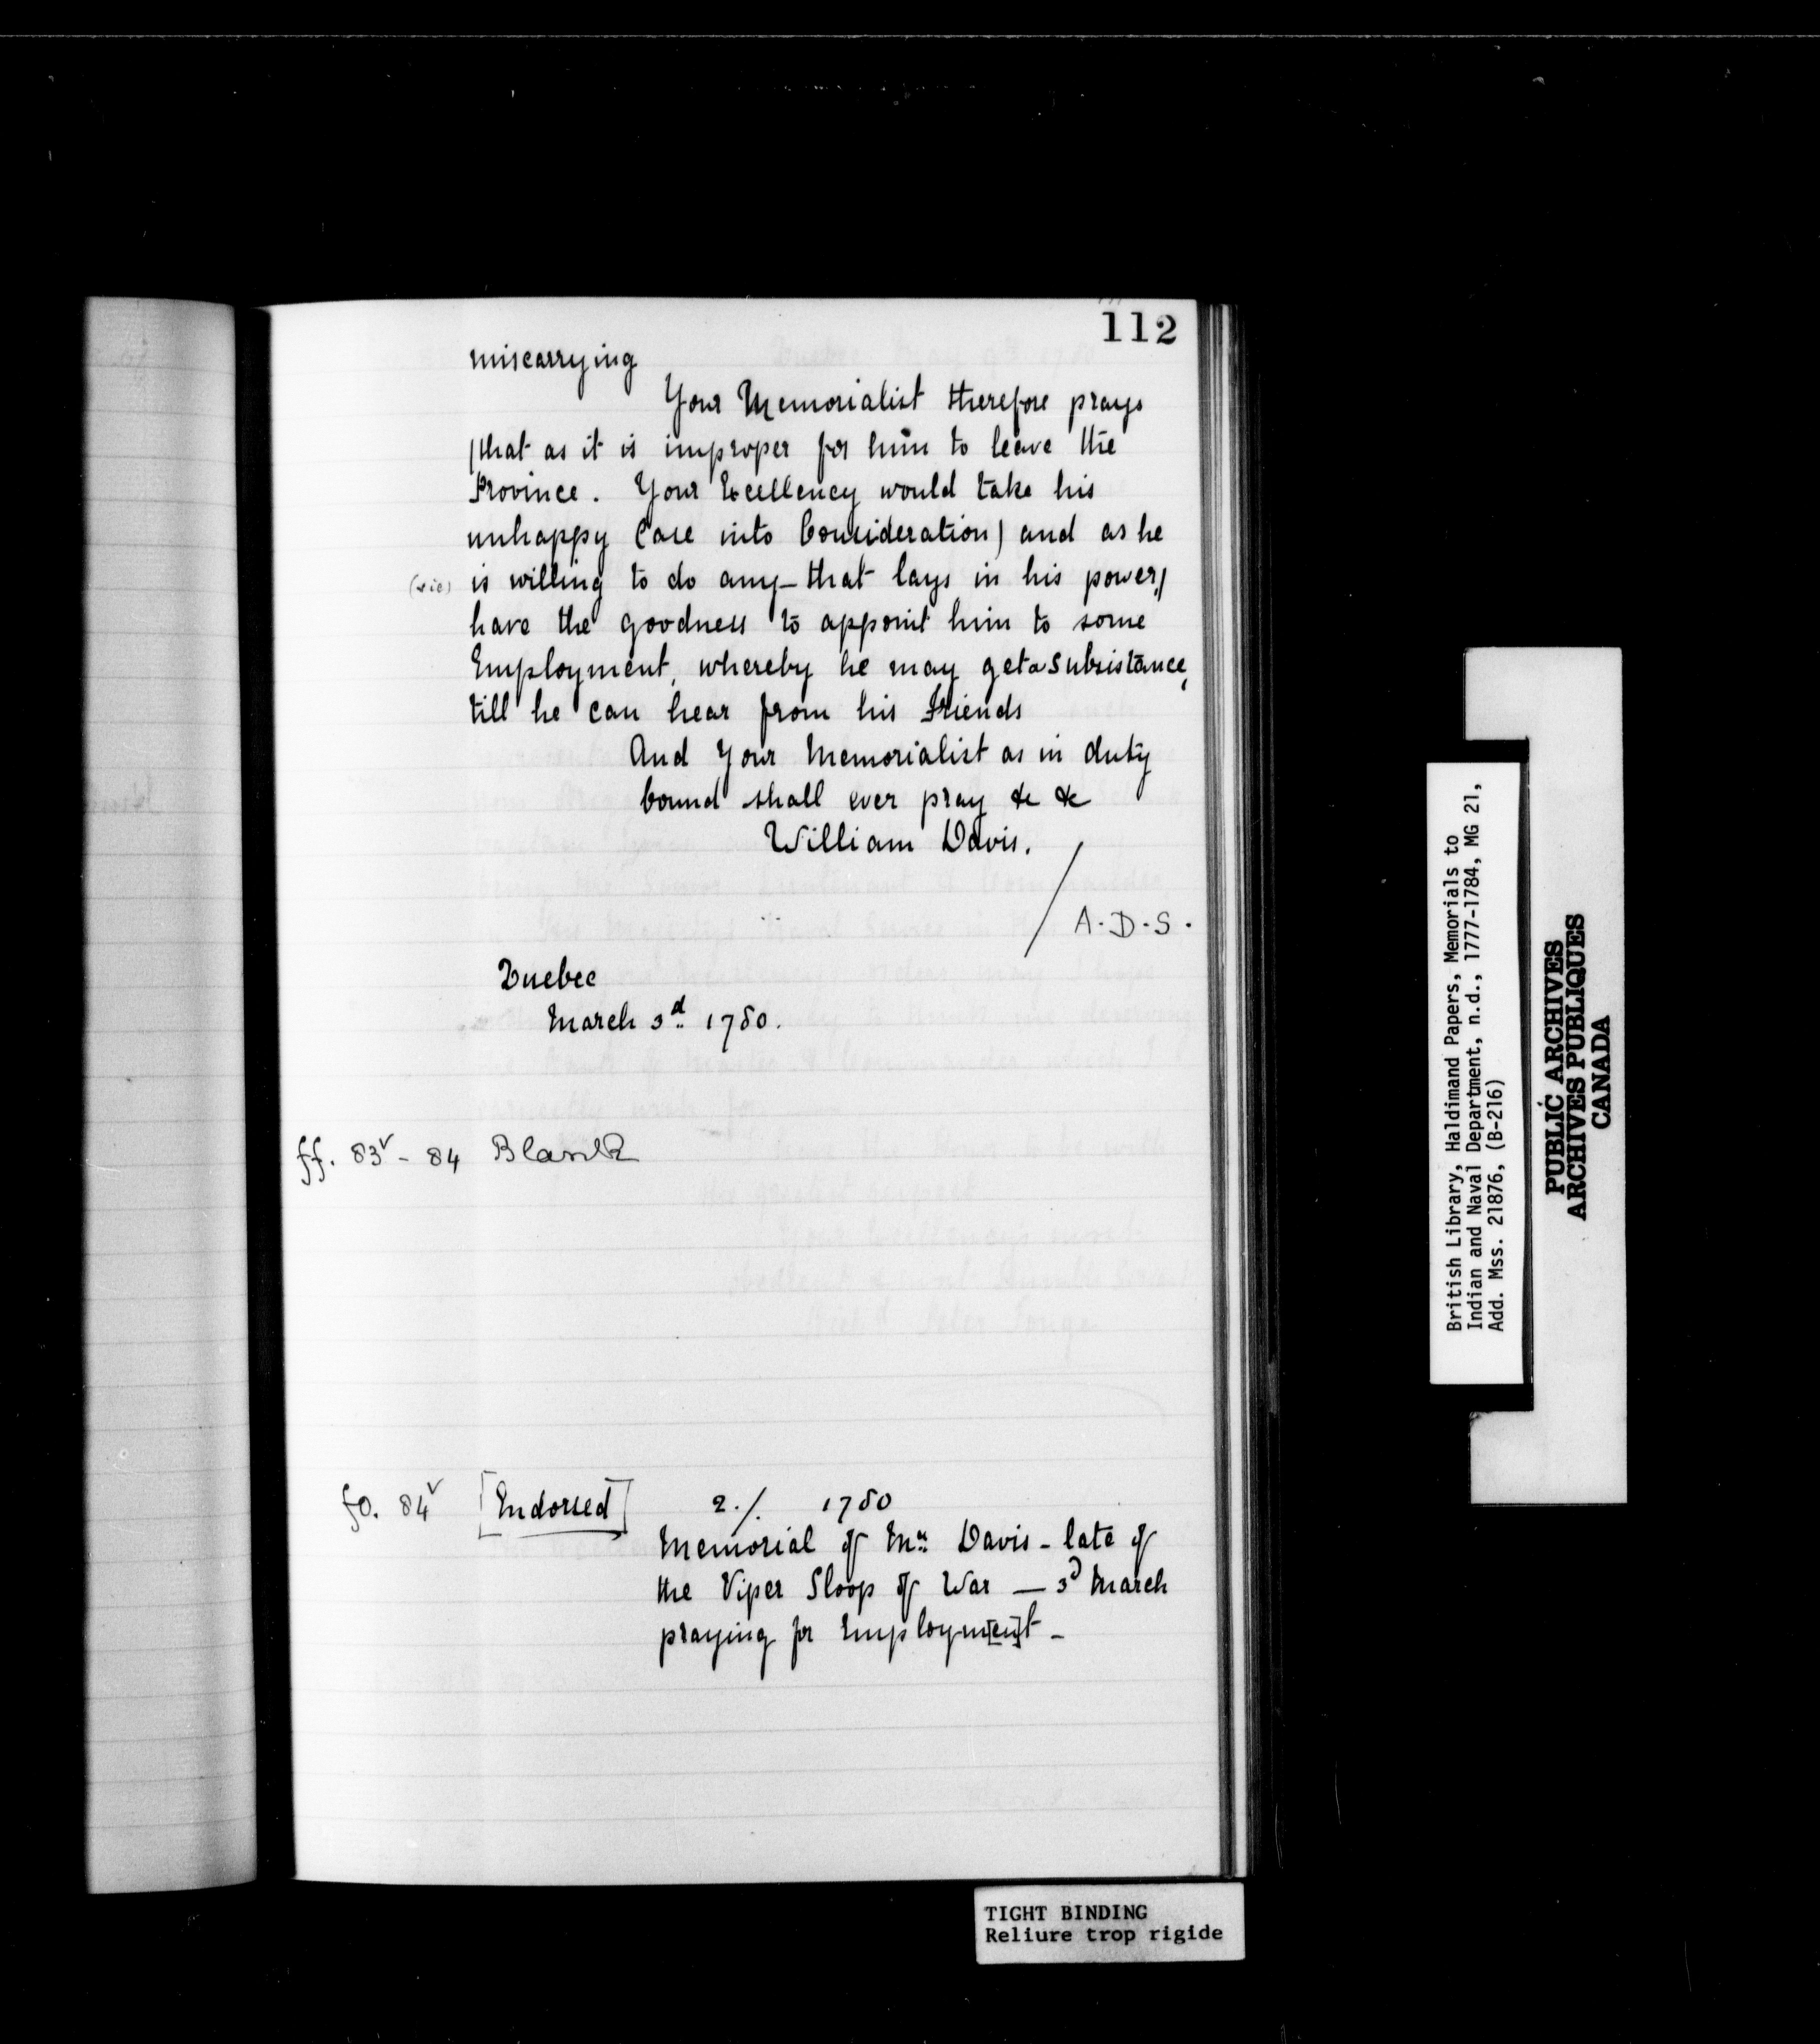 112
miscarrying
Your Memorialist therefore prays
(that as it is improper for him to leave the
Province. Your Excellency would take his
unhappy Case into Consideration) and as he
(sic) is willing to do any_that lays in his power,)
have the goodness to appoint him to some
Employment, whereby he may get a Subsistance,
till he can hear from his Friends
And Your Memorialist as in duty
bound shall ever pray &c &c
William Davis.
A.D.S.
Quebec
March 3d. 1780.
ff. 83v - 84 Blank
fo. 84v [Endorsed] 2./. 1780
Memorial of Mr. Davis - late of
the Viper Sloop of War — 3d March
praying for Employm[en]t -
British Library, Haldimand Papers, Memorials to
Indian and Naval Department, n.d., 1777-1784, MG 21,
Add. Mss. 21876, (B-216)
PUBLIC ARCHIVES
ARCHIVES PUBLIQUES
CANADA
TIGHT BINDING
Reliure trop rigide